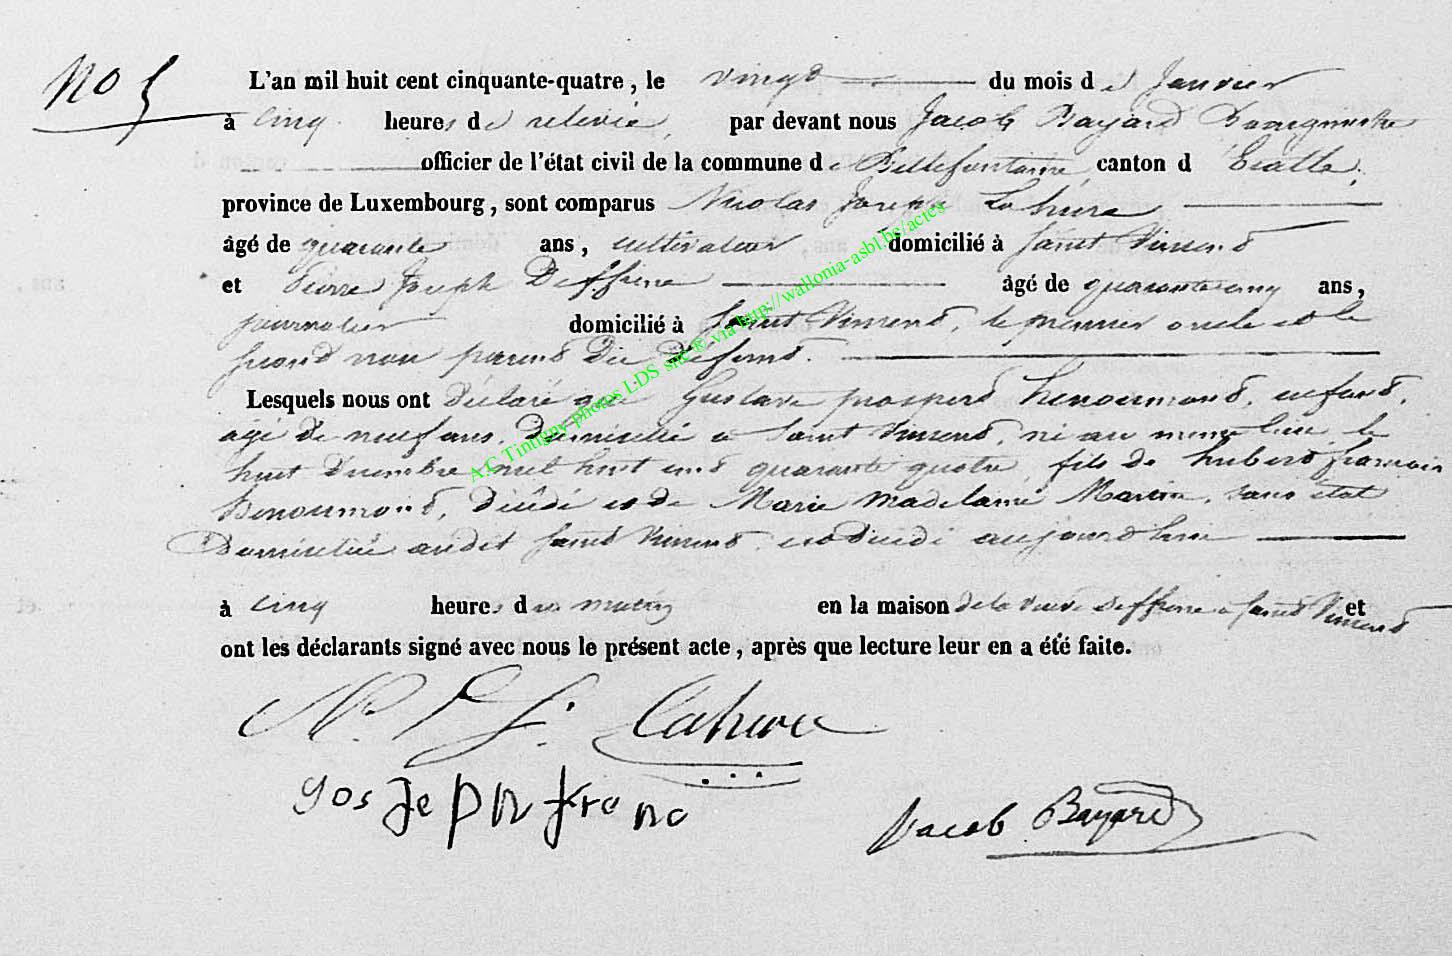 No 5
L'an mil huit cent cinquante-quatre, le vingt du mois de Janvier
à cinq heures de relevée, par devant nous Jacob Bayard Bourgmestre
officier de l'état civil de la commune de Bellefontaine, canton d'Etalle,
province de Luxembourg, sont comparus Nicolas Joseph Lahure
âgé de quarante ans, cultivateur domicilié à Saint Vincent
et Pierre Joseph Deffrene âgé de quarante cinq ans,
journalier domicilié à Saint Vincent, le premier oncle et le
second non parent du défunt.
Lesquels nous ont déclaré que Gustave prosperd henoumont, enfant,
agé de neuf ans, domicilié a Saint Vincent, né au meme lieu le
huit decembre mil huit cent quarante quatre, fils de hubert francois
henoumont, décédé et de Marie Madelaine Martin, sans état
Domiciliée audit Saint Vincent est décédé aujourdhui
à cinq heures du matin en la maison de la veuve deffrene a Saint Vincent et
ont les déclarants signé avec nous le présent acte, après que lecture leur en a été faite.
Lahure
Jacob Bayard
A.C Tintigny photos LDS site © via http://wallonia-asbl.be/actes